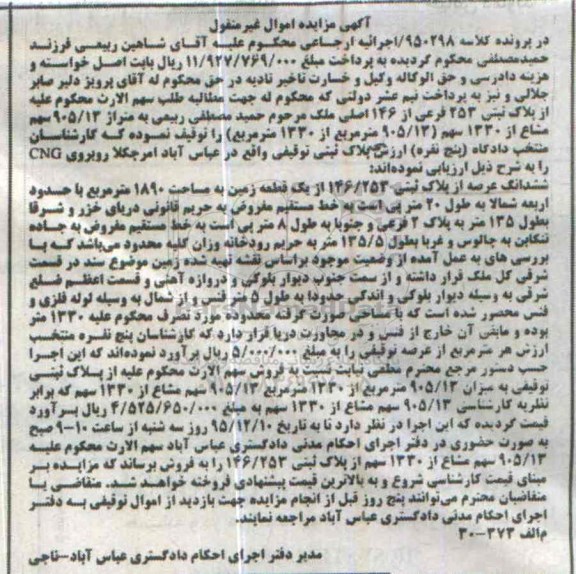 آگهی مزایده اموال غیر منقول
در پرونده کلاسه ۹۵۰۲۹۸/اجرائیه ارجاعی محکوم علیه آقای شاهین ربیعی فرزند
حمیدمصطفی محکوم گردیده به پرداخت مبلغ ۱۱/۹۲۷/۷۶۹/۰۰۰ ریال بابت اصل خواسته و
هزینه دادرسی و حق الوکاله وکیل و خسارت تاخیر تادیه در حق محکوم له آقای پرویز دلیر صابر
جلالی و نیز به پرداخت نیم عشر دولتی که محکوم له جهت مطالبه طلب سهم الارث محکوم علیه
از پلاک ثبتی ۲۵۳ فرعی از ۱۴۶ اصلی ملک مرحوم حمید مصطفی ربیعی به متراژ ۹۰۵/۱۳ سهم
مشاع از ۱۳۳۰ سهم (۹۰۵/۱۳ مترمربع از ۱۳۳۰ مترمربع) را توقیف نموده که کارشناسان
منتخب دادگاه (پنج نفره) ارزش پلاک ثبتی توقیفی واقع در عباس آباد امرجکلا روبروی CNG
را به شرح ذیل ارزیابی نموده‌اند:
ششدانگ عرصه از پلاک ثبتی ۱۴۶/۲۵۳ از یک قطعه زمین به مساحت ۱۸۹۰ مترمربع با حدود
اربعه شمالا به طول ۲۰ متر پی است به خط مستقیم مفروض به حریم قانونی دریای خزر و شرقا
بطول ۱۳۵ متر به پلاک ۲ فرعی و جنوبا به طول ۸ متر پی است به خط مستقیم مفروض به جاده
تنکابن به چالوس و غربا بطول ۱۳۵/۵ متر به حریم رودخانه وزان کلیه محدود می‌باشد که با
بررسی های به عمل آمده از وضعیت موجود براساس نقشه تهیه شده زمین موضوع سند در قسمت
شرقی کل ملک قرار داشته و از سمت جنوب دیوار بلوکی و دروازه آهنی و قسمت اعظم ضلع
شرقی به وسیله دیوار بلوکی و اندکی حدودا به طول ۵ متر فنس و از شمال به وسیله لوله فلزی و
فنس محصور شده است که با مساحی صورت گرفته محدوده مورد تصرف محکوم علیه ۱۳۳۰ متر
بوده و مابقی آن خارج از فنس و در مجاورت دریا قرار دارد که کارشناسان پنج نفره منتخب
ارزش هر مترمربع از عرصه توقیفی را به مبلغ ۵/۰۰۰/۰۰۰ ریال برآورد نموده‌اند که این اجرا
حسب دستور مرجع محترم معطی نیابت نسبت به فروش سهم الارث محکوم علیه از پلاک ثبتی
توقیفی به میزان ۹۰۵/۱۳ مترمربع از ۱۳۳۰ مترمربع ۹۰۵/۱۳ سهم مشاع از ۱۳۳۰ سهم که برابر
نظریه کارشناسی ۹۰۵/۱۳ سهم مشاع از ۱۳۳۰ سهم به مبلغ ۴/۵۲۵/۶۵۰/۰۰۰ ریال برآورد
قیمت گردیده که این اجرا در نظر دارد تا به تاریخ ۹۵/۱۲/۱۰ روز سه شنبه از ساعت ۱۰-۹ صبح
به صورت حضوری در دفتر اجرای احکام مدنی دادگستری عباس آباد سهم الارث محکوم علیه
۹۰۵/۱۳ سهم مشاع از ۱۳۳۰ سهم از پلاک ثبتی ۱۴۶/۲۵۳ را به فروش برساند که مزایده بر
مبنای قیمت کارشناسی شروع و به بالاترین قیمت پیشنهادی فروخته خواهند شد. متقاضی یا
متقاضیان محترم می‌توانند پنج روز قبل از انجام مزایده جهت بازدید از اموال توقیفی به دفتر
اجرای احکام مدنی دادگستری عباس آباد مراجعه نمایند.
م‌الف ۳۷۳-۳۰
مدیر دفتر اجرای احکام دادگستری عباس آباد-تاجی